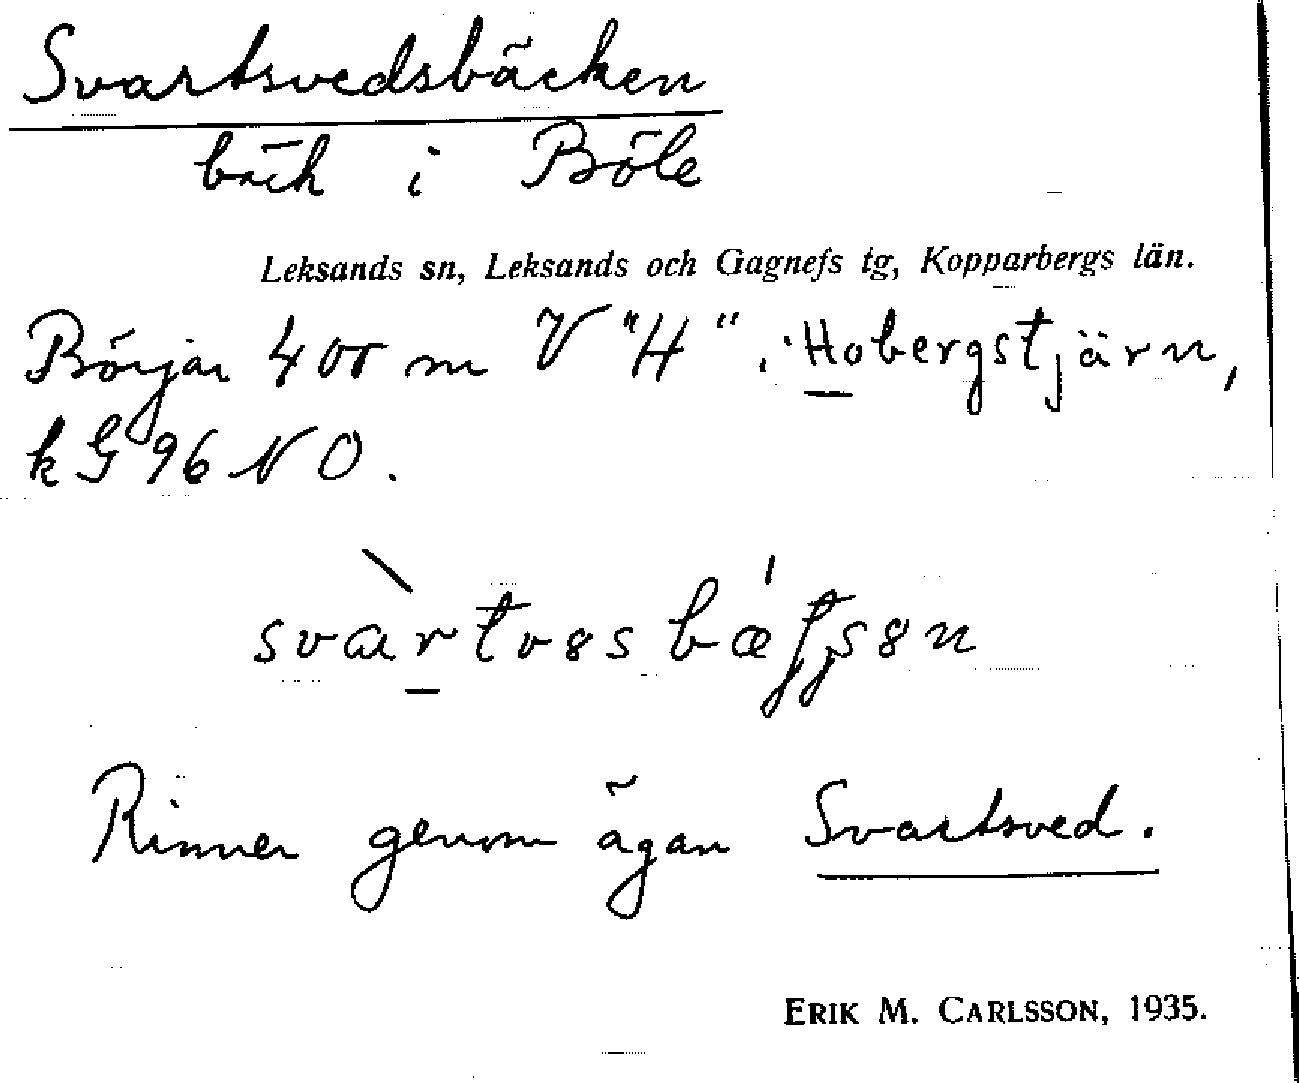 Svartsvedsbäcken
bäck i Böle
Leksands sn, Leksands och Gagnefs tg, Kopparbergs län.
Börjar 400 m V "H" i Hobergstjärn,
kG 96 NO.
Rinner genom ägan Svartsved.
ERIK M. CARLSSON, 1935.